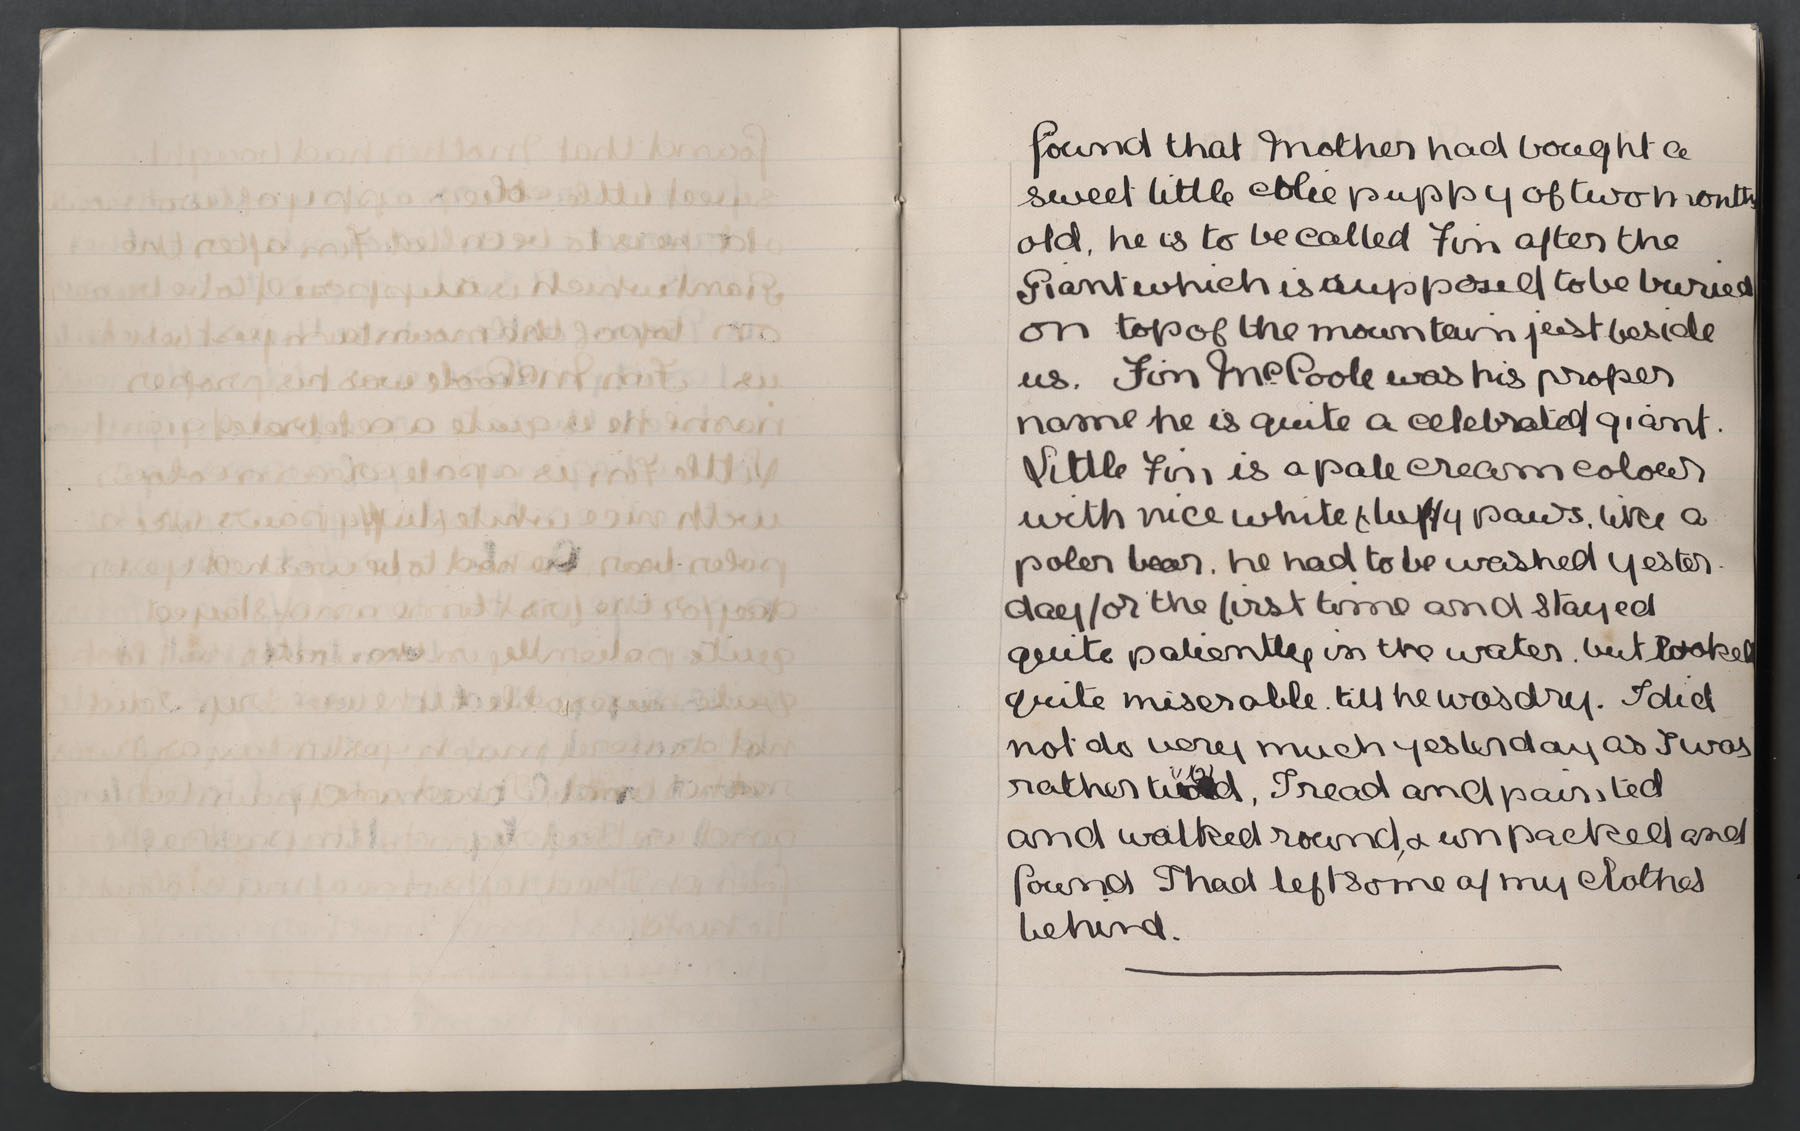 found that Mother had bought a
sweet little collie puppy of two months
old, he is to be called Fin after the
Giant which is supposed to be buried
on top of the mountain just beside
us. Fin McCoole was his proper
name he is quite a celebrated giant.
Little Fin is a pale cream colour
with nice white fluffy paws, like a
poler bear. he had to be washed yester-
day for the first time and stayed
quite patiently in the water. but looked
quite miserable. till he was dry. I did
not do very much yesterday as I was
rather tired, I read and painted
and walked round, & unpacked and
found I had left some of my clothes
behind.